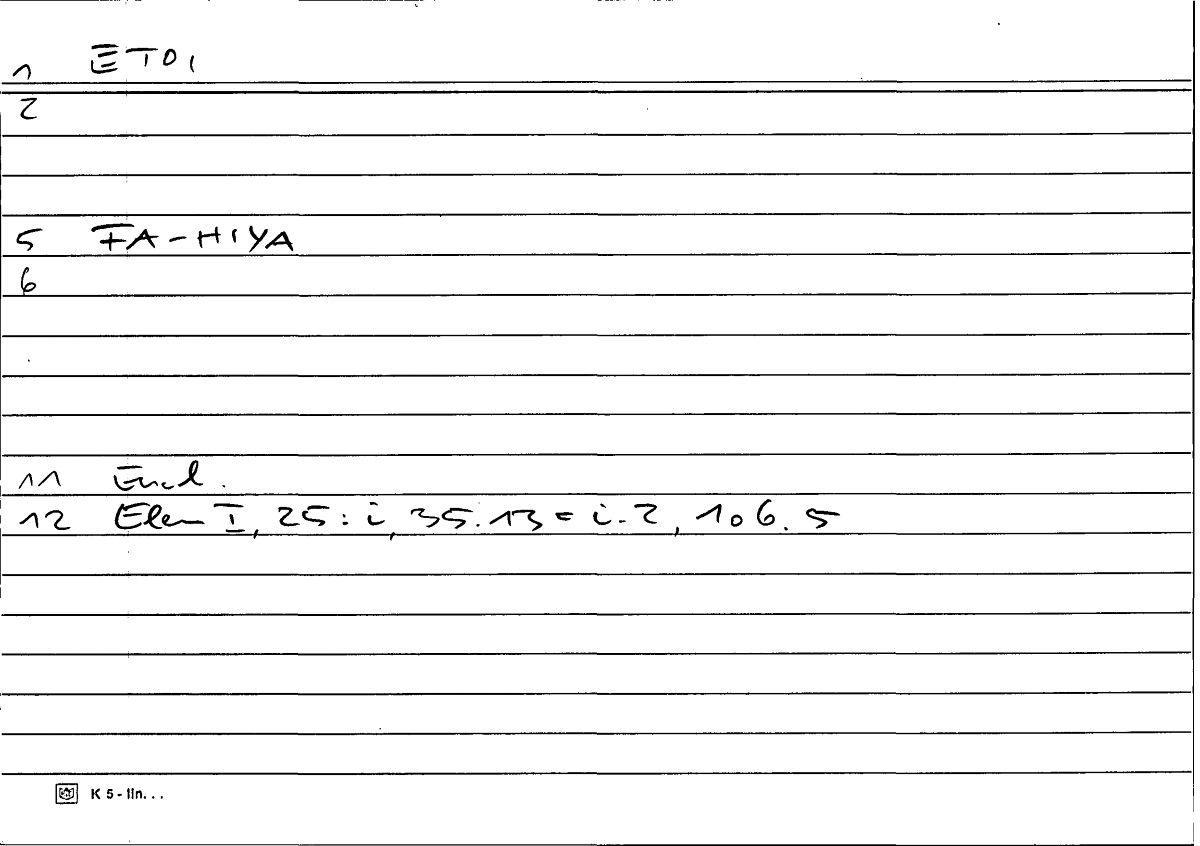 1 ETOI
2
5 FA-HIYA
6
11 Eucl.
12 Elem I, 25: i, 35.13 = i.2, 106.5
K 5 - lin...